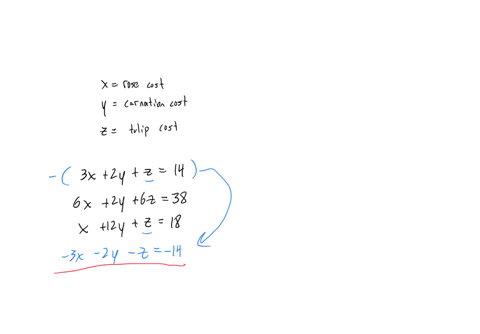 x = rose cost
y = carnation cost
z = tulip cost
-( 3x + 2y + z = 14 )
6x + 2y + 6z = 38
x + 12y + z = 18
-3x - 2y - z = -14